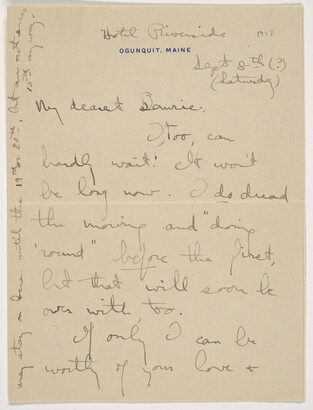 Hotel Riverside
1918
OGUNQUIT, MAINE
Sept 8th (?)
(Saturday)
My dearest
I, too, can
hardly wait! It won't
be long now. I do dread
the moving and "doing
'round" before the first,
but that will soon be
over with, too.
If only I can be
worthy of your love +
may stay on here until the 19th or 20th, but am not sure
15th anyway.